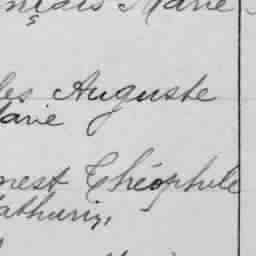 nçois Marie
les Auguste
Marie
nest Théophile
Mathurin,